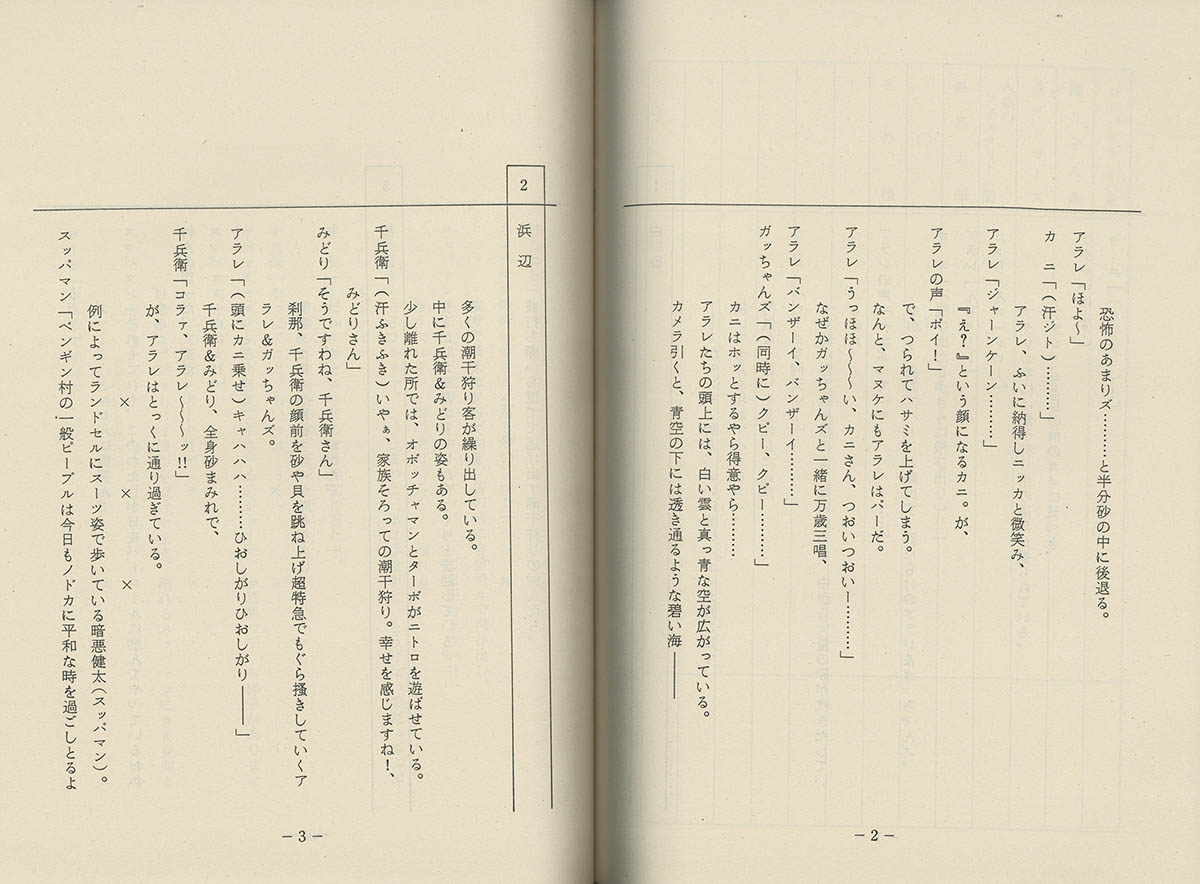 恐怖のあまりズ…………と半分砂の中に後退る。
アラレ「ほよ〜」
カ　ニ「（汗ジト）………」
アラレ、ふいに納得しニッカと微笑み、
アラレ「ジャーンケーン………」
『え？』という顔になるカニ。が、
アラレの声「ポイ！」
で、つられてハサミを上げてしまう。
なんと、マヌケにもアラレはパーだ。
アラレ「うっほほ〜〜〜い、カニさん、つおいつおいー…………」
なぜかガッちゃんズと一緒に万歳三唱、
アラレ「バンザーイ、バンザーイ…………」
ガッちゃんズ「（同時に）クピー、クピー…………」
カニはホッとするやら得意やら…………
アラレたちの頭上には、白い雲と真っ青な空が広がっている。
カメラ引くと、青空の下には透き通るような碧い海――
－2－
2　浜辺
多くの潮干狩り客が繰り出している。
中に千兵衛＆みどりの姿もある。
少し離れた所では、オボッチャマンとターボがニトロを遊ばせている。
千兵衛「（汗ふきふき）いやぁ、家族そろっての潮干狩り。幸せを感じますね！、
みどりさん」
みどり「そうですわね、千兵衛さん」
刹那、千兵衛の顔前を砂や貝を跳ね上げ超特急でもぐら掻きしていくア
ラレ＆ガッちゃんズ。
アラレ「（頭にカニ乗せ）キャハハハ…………ひおしがりひおしがり――」
千兵衛＆みどり、全身砂まみれで、
千兵衛「コラァ、アラレ〜〜〜ッ!!」
が、アラレはとっくに通り過ぎている。
×　×　×
例によってランドセルにスーツ姿で歩いている暗悪健太（スッパマン）。
スッパマン「ペンギン村の一般ピープルは今日もノドカに平和な時を過ごしとるよ
－3－